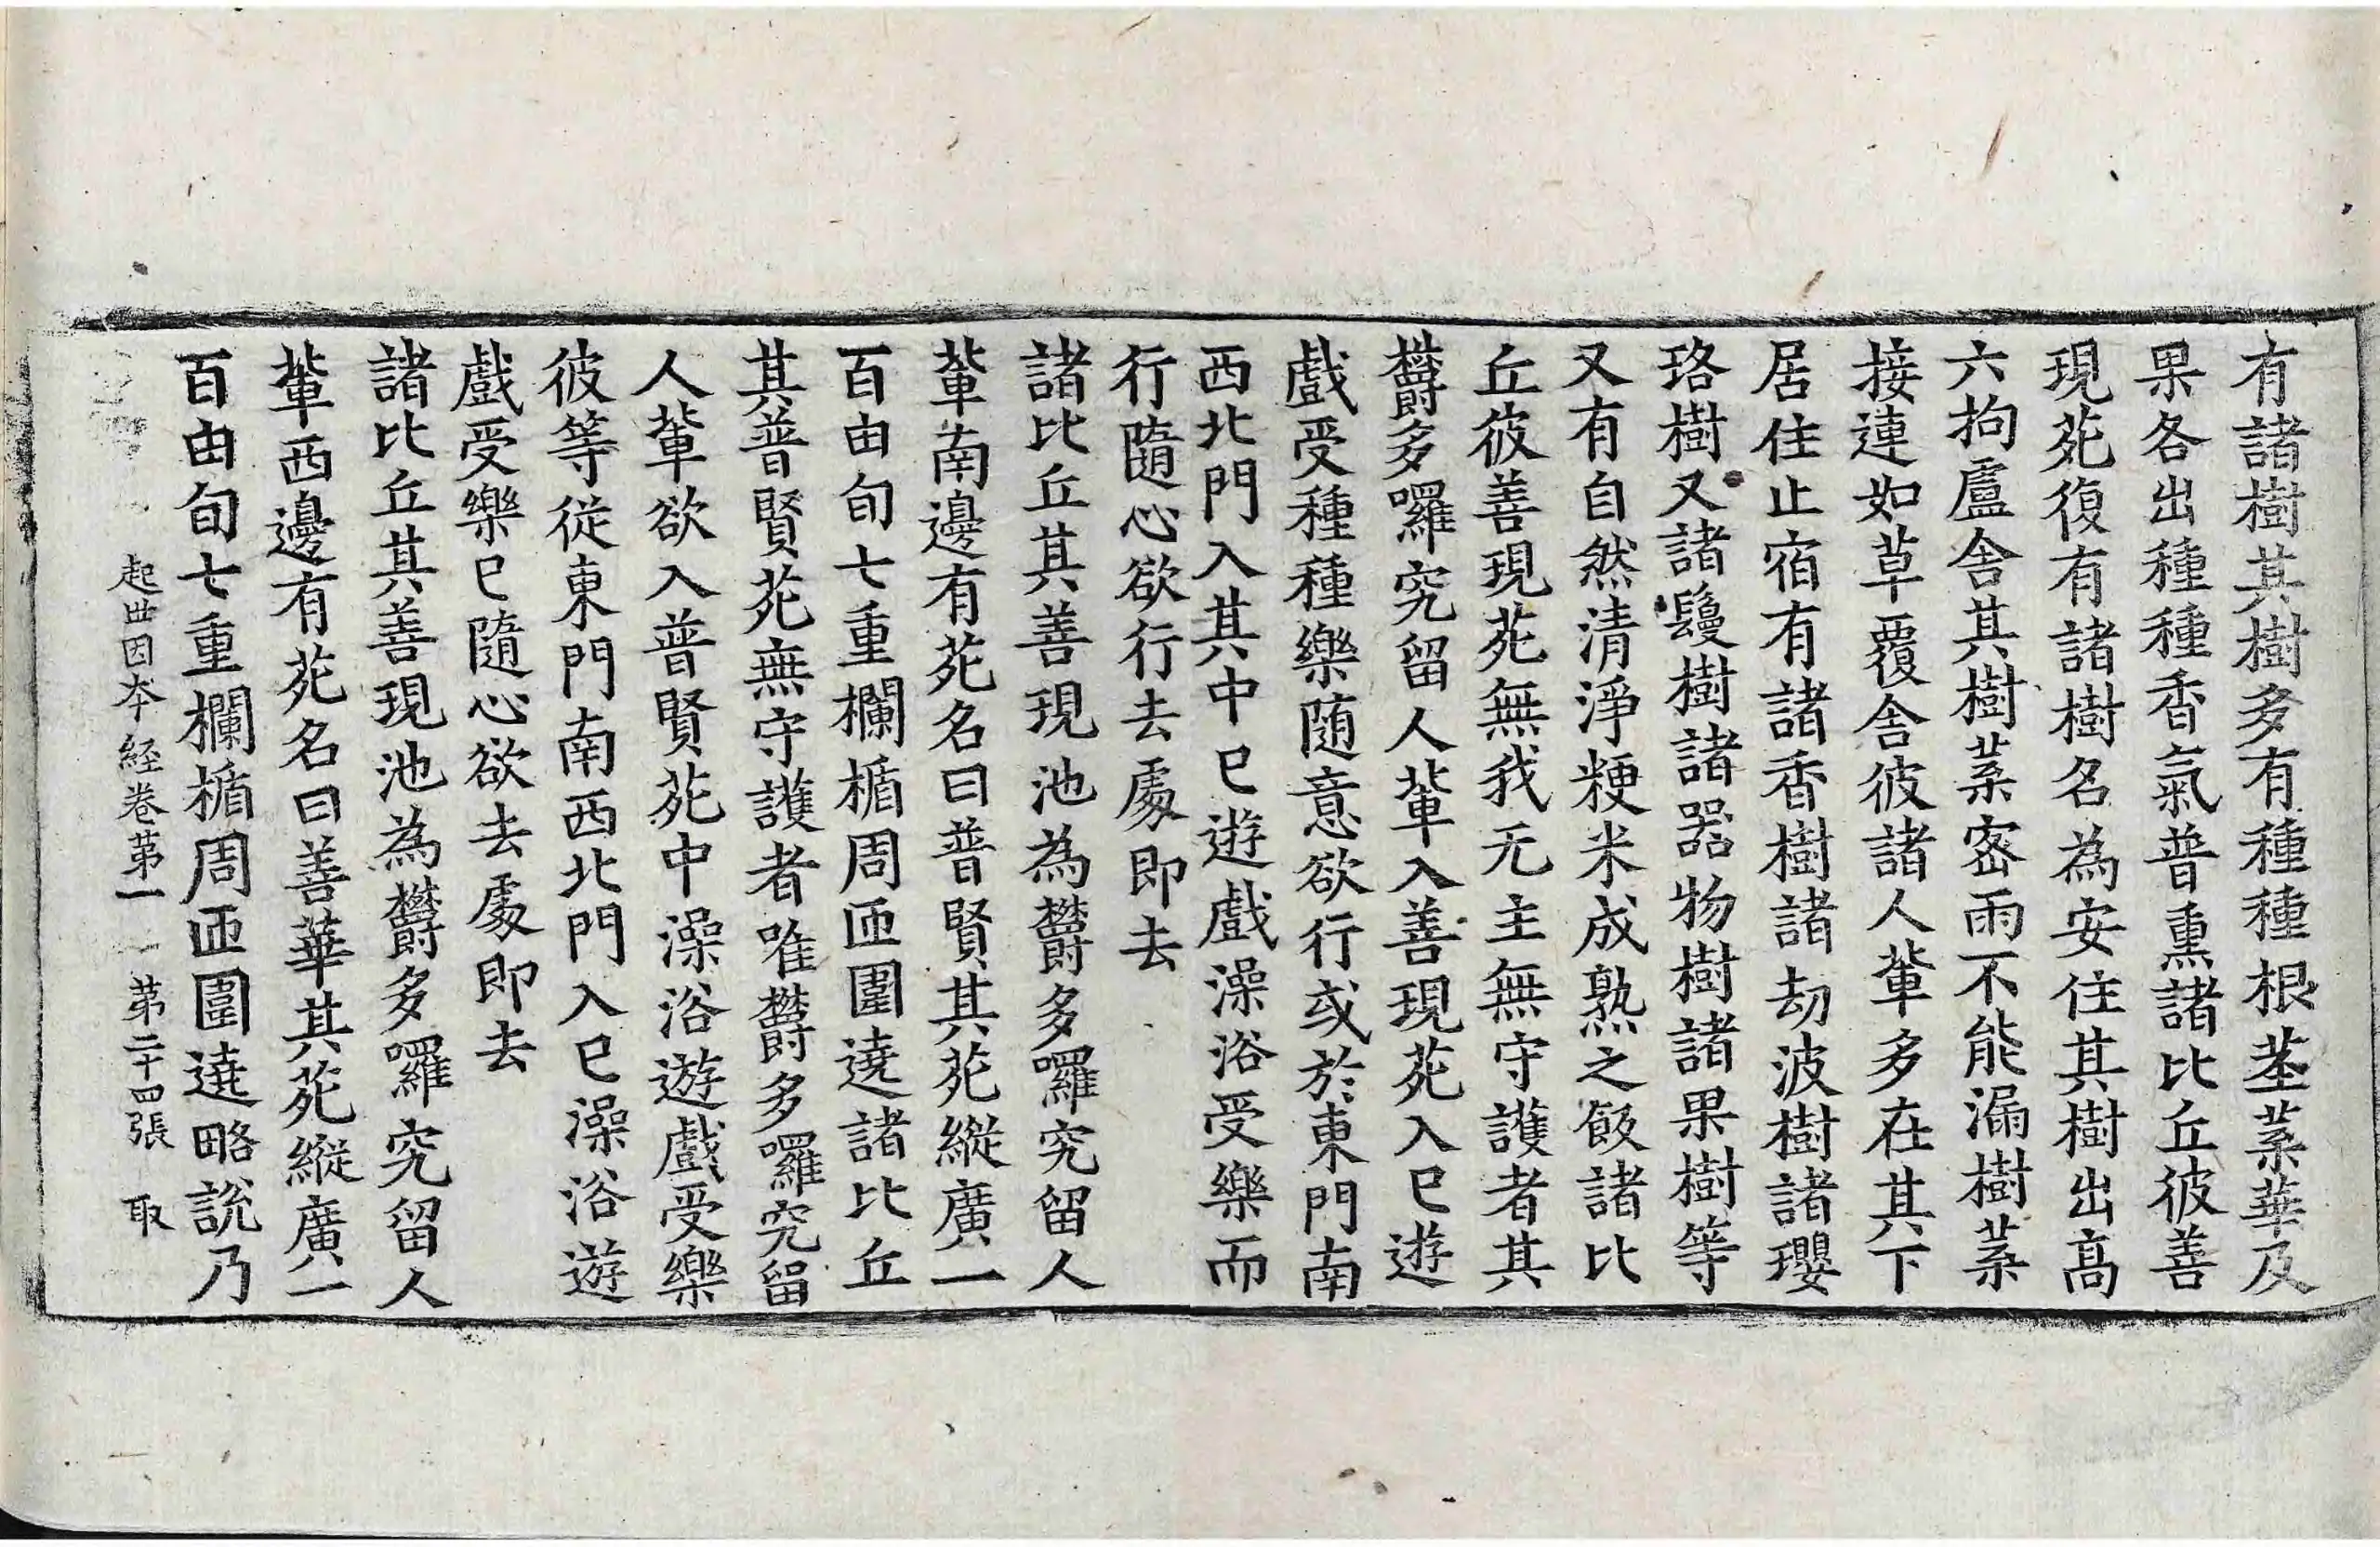 有諸樹其樹多有種種根莖葉華及
果各出種種香氣普熏諸比丘彼善
現苑復有諸樹名為安住其樹出高
六拘盧舍其樹葉密雨不能漏樹葉
接連如草覆舍彼諸人輩多在其下
居住止宿有諸香樹諸劫波樹諸瓔
珞樹又諸鬘樹諸器物樹諸果樹等
又有自然清淨粳米成熟之飯諸比
丘彼善現苑無我无主無守護者其
欝多囉究留人輩入善現苑入已遊
戲受種種樂随意欲行或於東門南
西北門入其中已遊戲澡浴受樂而
行隨心欲行去處即去
諸比丘其善現池為欝多囉究留人
輩南邊有苑名曰普賢其苑縱廣一
百由旬七重欄楯周匝圍遶諸比丘
其普賢苑無守護者唯欝多囉究留
人輩欲入普賢苑中澡浴遊戲受樂
彼等從東門南西北門入已澡浴遊
戲受樂已隨心欲去處即去
諸比丘其善現池為欝多囉究留人
輩西邊有苑名曰善華其苑縱廣一
百由旬七重欄楯周匝圍遶略說乃
起世因本經卷苐一 苐二十四張 取